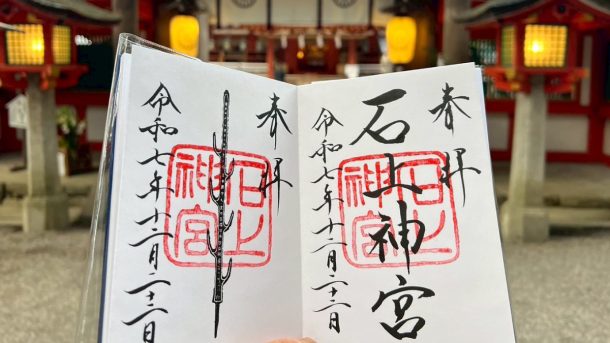 奉拝
石上神宮
石上
神宮
令和七年十二月二十二日
奉拝
石上
神宮
令和七年十二月二十二日